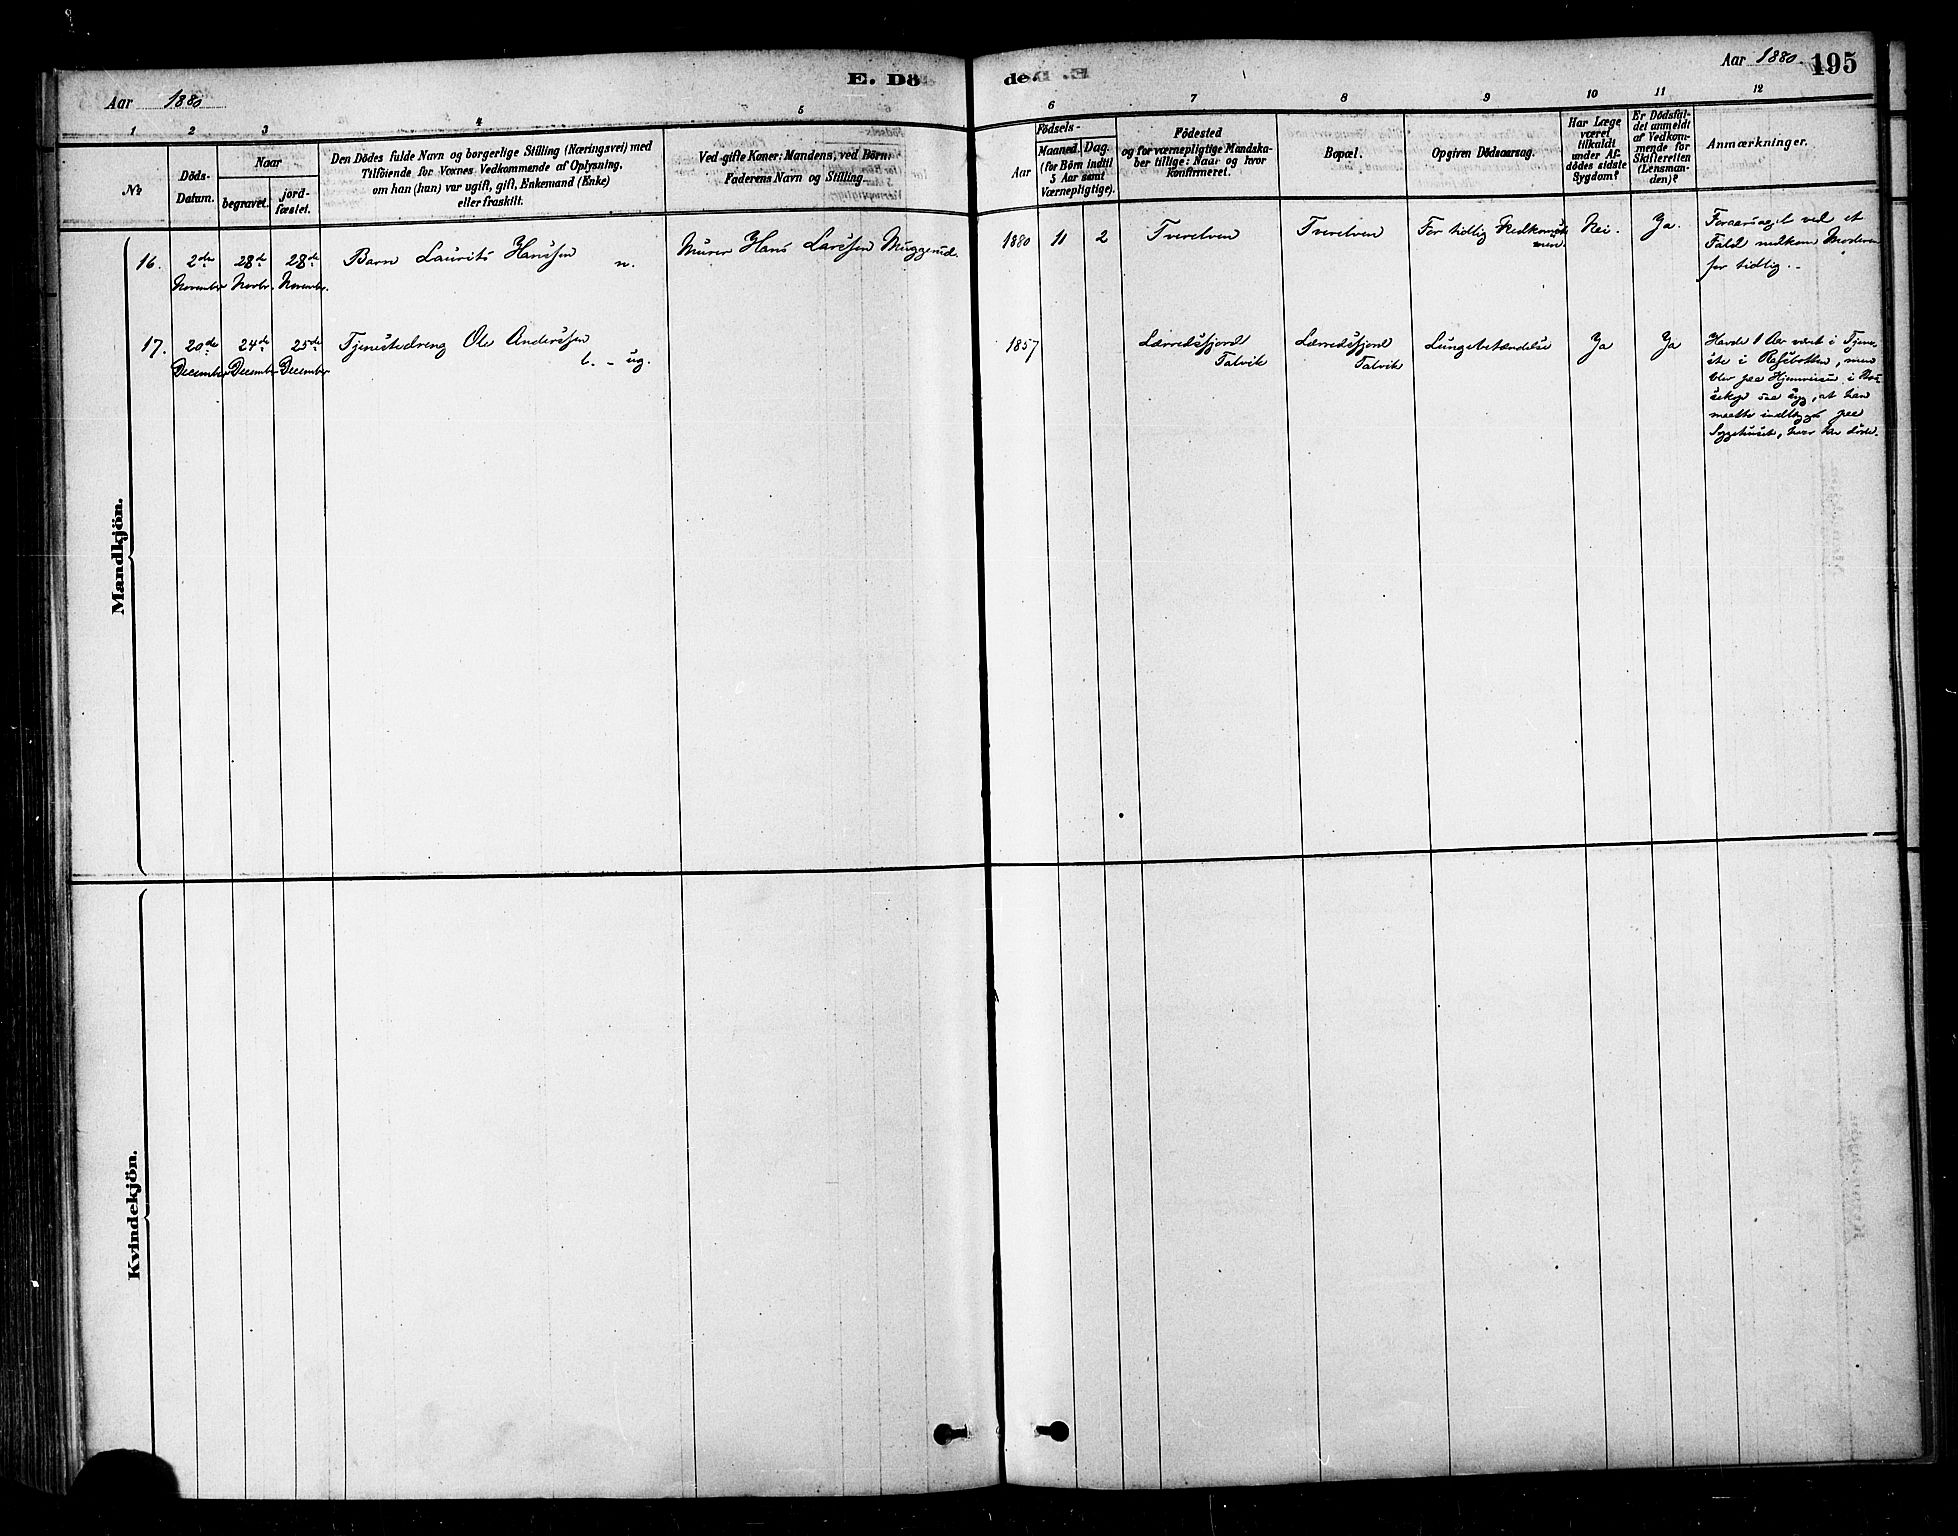 E. Döde.
Aar 1880
Aar 1880.
195
1
2
3
4
5
6
7
8
9
10
11
12
No
Döds-
Datum.
Naar
begravet.
jord-
fæstet.
Den Dödes fulde Navn og borgerlige Stilling (Næringsvei) med
Tilföiende for Voxnes Vedkommende af Oplysning,
om han (hun) var ugift, gift, Enkemand (Enke)
eller fraskilt.
Ved gifte Koner: Mandens, ved Börn:
Faderens Navn og Stilling.
Födsels-
Aar
Maaned.
Dag.
(for Börn indtil
5 Aar samt
Værnepligtige).
Födested
og for værnepligtige Mandska-
ber tillige: Naar og hvor
Konfirmeret.
Bopæl.
Opgiven Dödsaarsag.
Har Læge
været
tilkaldt
under Af-
dödes sidste
Sygdom?
Er Dödsfal-
det anmeldt
af Vedkom-
mende for
Skifteretten
(Lensman-
den)?
Anmærkninger.
Mandkjön.
16.
2de
November
28de
Novbr.
28de
Novembr.
Barn Laurits Hanssen
n.
Murer Hans Larssen Muggerud.
1880
11
2
Tverelven
Tverelven
For tidlig Nedkomst
Nei.
Ja.
Foraarsaget ved et
Fald nedkom Moderen
for tidlig.-
17.
20de
December
24de
December
25de
December
Tjenestedreng Ole Anderssen
l. - ug.
1857
Lærredsfjord
Talvik
Lærredsfjord
Talvik
Lungebetændelse
Ja
Ja
Havde 1 Aar været i Tjene-
ste i Rafsbotten, men
blev paa Hjemreisen i Bos-
sekop saa syg, at han
maatte indlægges paa
Sygehuset, hvor han döde.
Kvindekjön.